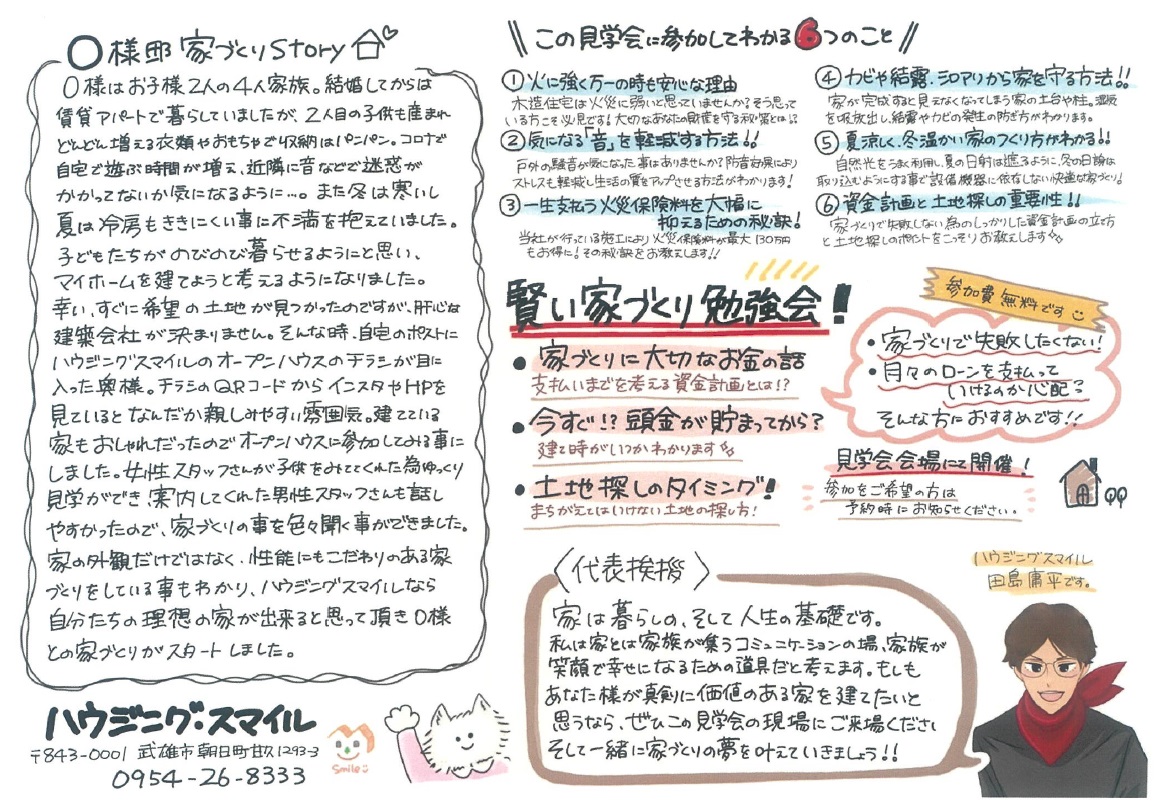 O様邸 家づくりStory
O様はお子様2人の4人家族。結婚してからは
賃貸アパートで暮らしていましたが、2人目の子供も産まれ
どんどん増える衣類やおもちゃで収納はパンパン。コロナで
自宅で遊ぶ時間が増え、近隣に音などで迷惑が
かかってないか気になるように…。また冬は寒いし
夏は冷房もききにくい事に不満を抱えていました。
子どもたちがのびのび暮らせるようにと思い、
マイホームを建てようと考えるようになりました。
幸い、すぐに希望の土地が見つかったのですが、肝心な
建築会社が決まりません。そんな時、自宅のポストに
ハウジングスマイルのオープンハウスのチラシが目に
入った奥様。チラシのQRコードからインスタやHPを
見ているとなんだか親しみやすい雰囲気。建てている
家もおしゃれだったのでオープンハウスに参加してみる事に
しました。女性スタッフさんが子供をみててくれた為ゆっくり
見学ができ、案内してくれた男性スタッフさんも話し
やすかったので、家づくりの事を色々聞く事ができました。
家の外観だけではなく、性能にもこだわりのある家
づくりをしている事もわかり、ハウジングスマイルなら
自分たちの理想の家が出来ると思って頂きO様
との家づくりがスタートしました。
ハウジング・スマイル
〒843-0001 武雄市朝日町甘久1293-3
0954-26-8333
smile
この見学会に参加してわかる6つのこと
① 火に強く万一の時も安心な理由
木造住宅は火災に弱いと思っていませんか?そう思って
いる方こそ必見です!大切なあなたの財産を守る秘策とは!?
② 気になる「音」を軽減する方法!!
戸外の騒音が気になった事はありませんか?防音効果により
ストレスも軽減し生活の質をアップさせる方法がわかります!
③ 一生支払う火災保険料を大幅に
抑えるための秘訣!
当社が行っている施工により火災保険料が最大130万円
もお得に!その秘訣をお教えします!!
④ カビや結露.シロアリから家を守る方法!!
家が完成すると見えなくなってしまう家の土台や柱。湿気
を吸放出し、結露やカビの発生の防ぎ方がわかります。
⑤ 夏涼しく、冬温かい家のつくり方がわかる!!
自然光をうまく利用し、夏の日射は遮るように、冬の日射は
取り込むようにする事で設備機器に依存しない快適な家づくり!
⑥ 資金計画と土地探しの重要性!!
家づくりで失敗しない為のしっかりした資金計画の立て方
と土地探しのポイントをこっそりお教えします
賢い家づくり勉強会!
• 家づくりに大切なお金の話
支払いまでを考える資金計画とは!?
• 今すぐ!?頭金が貯まってから?
建て時がいつかわかります
• 土地探しのタイミング!
まちがえてはいけない土地の探し方!
参加費無料です
• 家づくりで失敗したくない!
• 月々のローンを支払って
いけるのか心配?
そんな方におすすめです!!
見学会会場にて開催!
参加をご希望の方は
予約時にお知らせください。
〈代表挨拶〉
家は暮らしの、そして人生の基礎です。
私は家とは家族が集うコミュニケーションの場、家族が
笑顔で幸せになるための道具だと考えます。もしも
あなた様が真剣に価値のある家を建てたいと
思うなら、ぜひこの見学会の現場にご来場くださ
そして一緒に家づくりの夢を叶えていきましょう!!
ハウジングスマイル
田島庸平です。